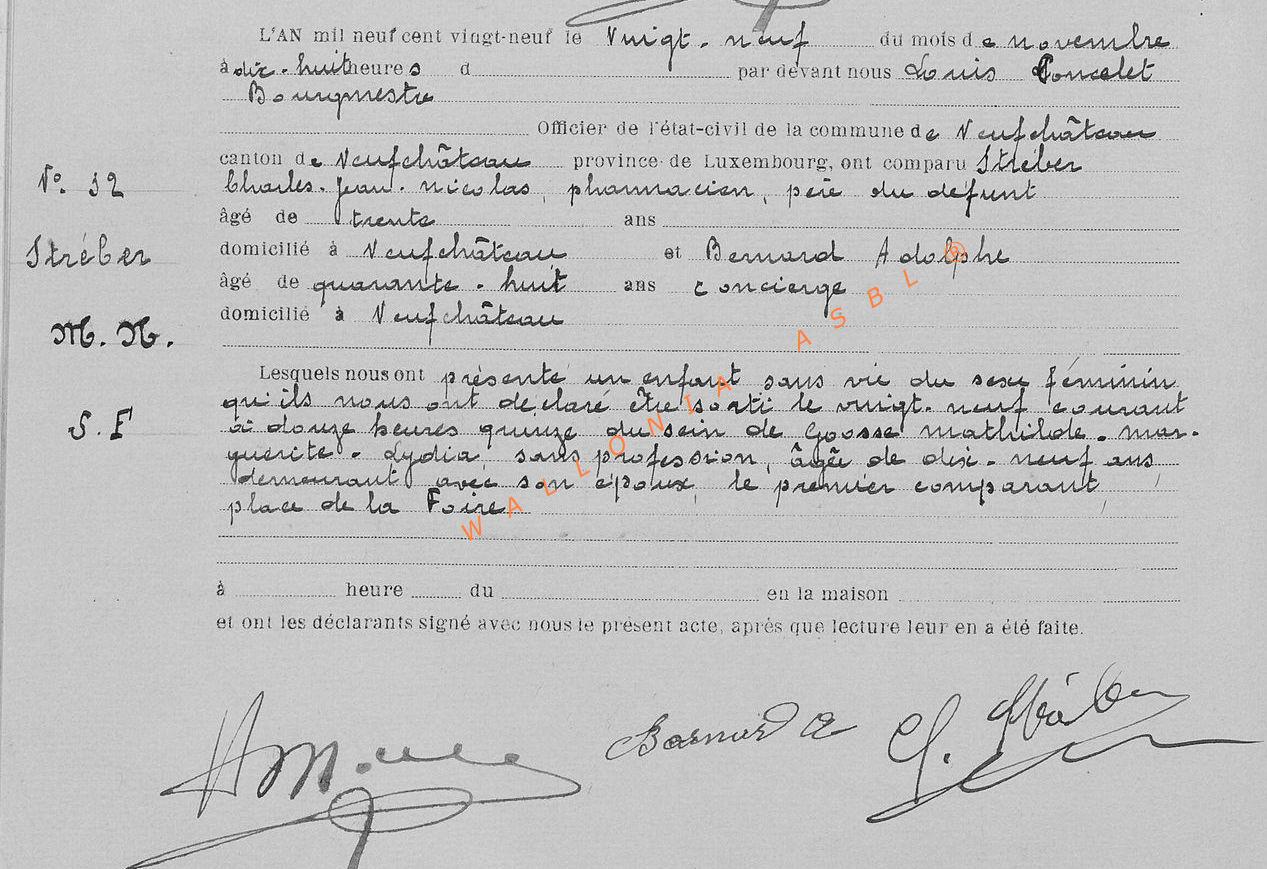 L'AN mil neuf cent vingt-neuf le Vingt-neuf du mois de novembre
à dix-huit heures d par devant nous Louis Poncelet
Bourgmestre
Officier de l'état-civil de la commune de Neufchâteau
canton de Neufchâteau province de Luxembourg, ont comparu Stréber
Charles-Jean-nicolas, pharmacien, père du défunt
âgé de trente ans
domicilié à Neufchâteau et Bernard Adolphe
âgé de quarante-huit ans concierge
domicilié à Neufchâteau
No. 32
Stréber
M. N.
S. F
Lesquels nous ont présenté un enfant sans vie du sexe féminin
qu'ils nous ont déclaré être sorti le vingt-neuf courant
à douze heures quinze du sein de Gosse mathilde-mar-
guerite-Lydia, sans profession, âgée de dix-neuf ans
demeurant avec son époux, le premier comparant,
place de la Foire
à heure du en la maison
et ont les déclarants signé avec nous le présent acte, après que lecture leur en a été faite.
Bernard A
WALLONIA ASBL ®